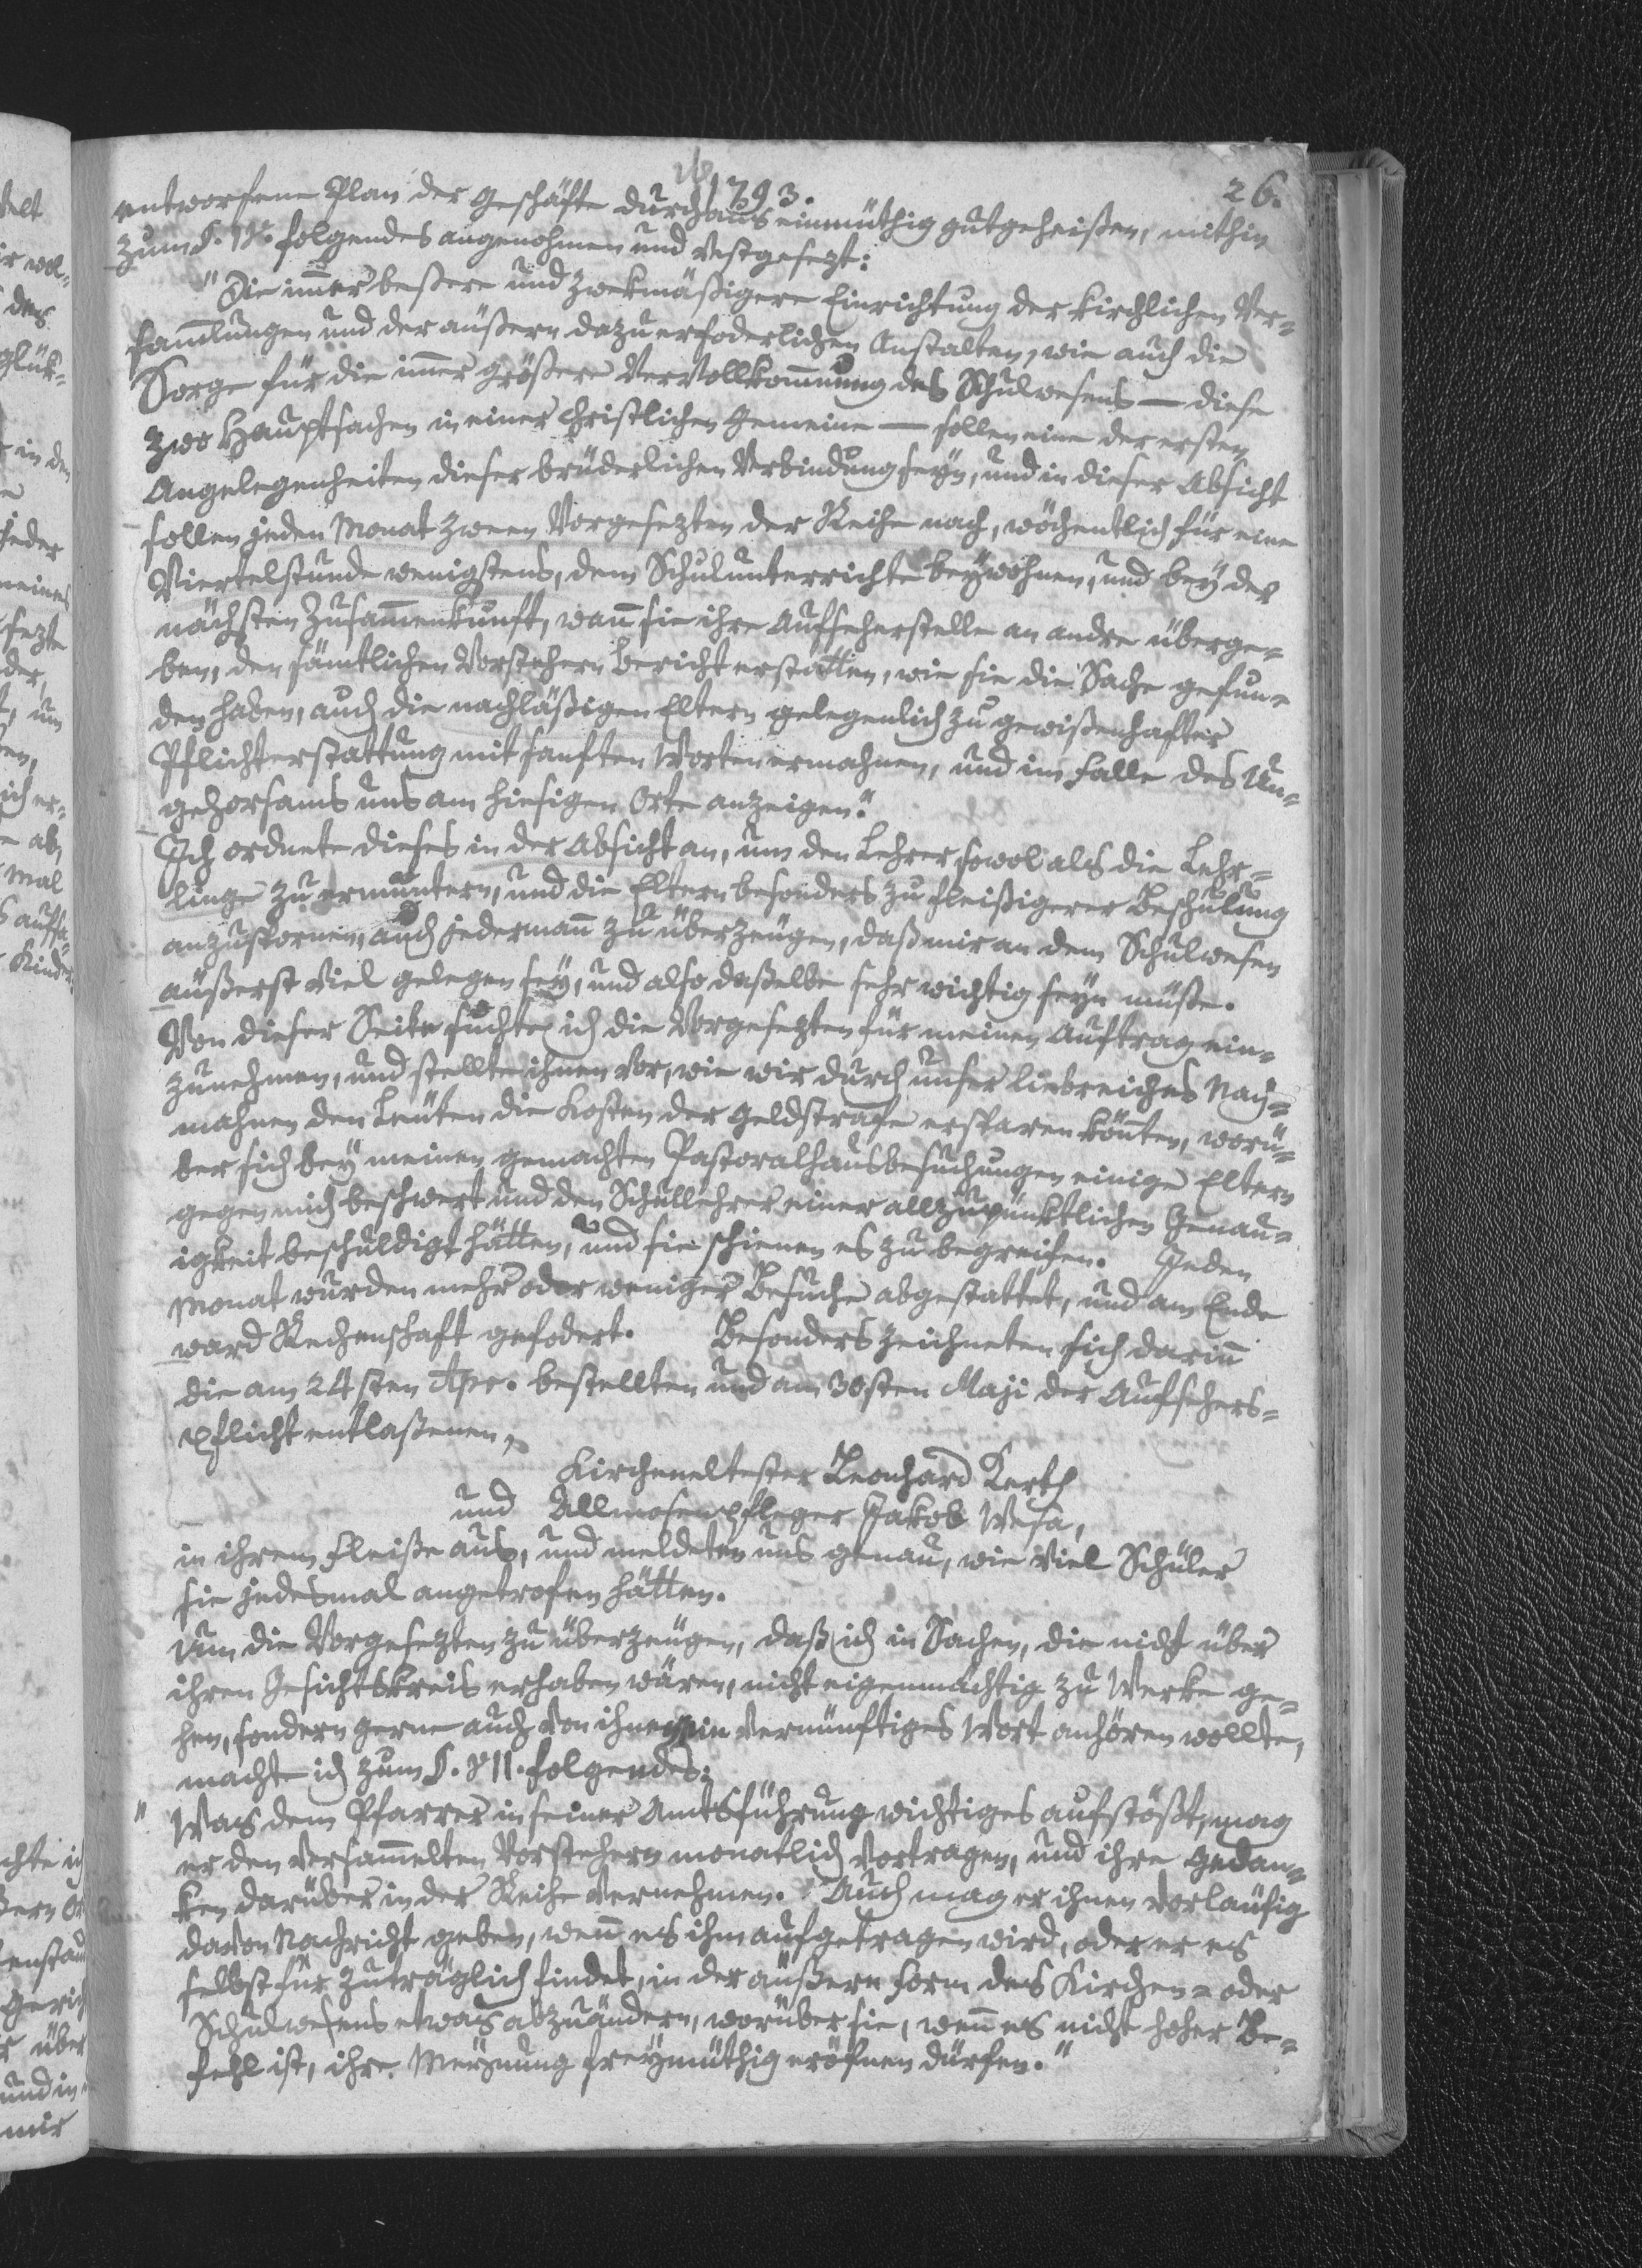 1793.
26.
entworfene Plan der Geschäfte durchaus einmüthig gutgeheißen, mithin
zum §. V. folgendes angenohmen und vestgesezt:
"Die im̅er beßere und zwekmäßigere Einrichtung der kirchlichen Ver-
sam̅lungen und der äußern dazu erfoderlichen Anstalten, wie auch die
Sorge für die im̅er größere Vervollkom̅nung des Schulwesens — diese
zwo Hauptsachen in einer christlichen Gemeine — sollen eine der ersten
Angelegenheiten dieser brüderlichen Verbindung seyn, und in dieser Absicht
sollen jeden Monat zween Vorgesezten der Reihe nach, wöchentlich für eine
Viertelstunde wenigstens, dem Schulunterrichte beywohnen, und bey der
nächsten Zusam̅enkunft, wan̅ sie ihre Aufseherstelle an andre überge-
ben, den sämtlichen Vorstehern Bericht erstatten, wie sie die Sache gefun-
den haben, auch die nachläßigen Eltern gelegenlich zu gewißenhafter
Pflichterstattung mit sanften Worten ermahnen, und im Falle des Un-
gehorsams uns am hiesigen Orte anzeigen."
Ich ordnete dieses in der Absicht an, um den Lehrer sowol als die Lehr-
linge zu ermuntern, und die Eltern besonders zu fleißigerer Beschulung
anzuspornen, auch jederman̅ zu überzeugen, daß mir an dem Schulwesen
äußerst viel gelegen sey, und also daßelbe sehr wichtig seyn müße.
Von dieser Seite suchte ich die Vorgesezten für meinen Auftrag ein-
zunehmen, und stellte ihnen vor, wie wir durch unser liebreiches
mahnen den Leuten die Kosten der Geldstrafe ersparen kön̅ten, worü-
ber sich bey meinen gemachten Pastoralhausbesuchungen einige Eltern
gegen mich beschwert und den Schullehrer einer allzupünktlichen Genau-
igkeit beschuldigt hätten, und sie schienen es zu begreifen. Jeden
Monat wurden mehr oder weniger Besuche abgestattet, und am Ende
ward Rechenschaft gefodert. Besonders zeichneten sich darin̅
die am 24sten Apr. bestellten und am 30sten Maji der Aufsehers-
pflicht entlaßenen,
Kircheneltester Leonhard Kerth
und Allmosenpfleger Jakob Wesa,
in ihrem Fleiße aus, und meldeten uns genau, wie viel Schüler
sie jedesmal angetrofen hätten.
Um die Vorgesezten zu überzeugen, daß ich in Sachen, die nicht über
ihren Gesichtskreis erhaben wären, nicht eigenmächtig zu Werke ge-
hen, sondern gerne auch von ihnen ein vernünftiges Wort anhören wollte,
machte ich zum §. VII. folgendes:
"Was dem Pfarrer in seiner Amtsführung wichtiges aufstößt, mag
er den versam̅elten Vorstehern monatlich vortragen, und ihre Gedan-
ken darüber in der Reihe vernehmen. Auch mag er ihnen vorläufig
davon Nachricht geben, wen̅ es ihm aufgetragen wird, oder er es
selbst für zuträglich findet, in der äußern Form des Kirchen- oder
Schulwesens etwas abzuändern, worüber sie, wen̅ es nicht hoher Be-
fehl ist, ihre Meynung freymüthig eröfnen dürfen."